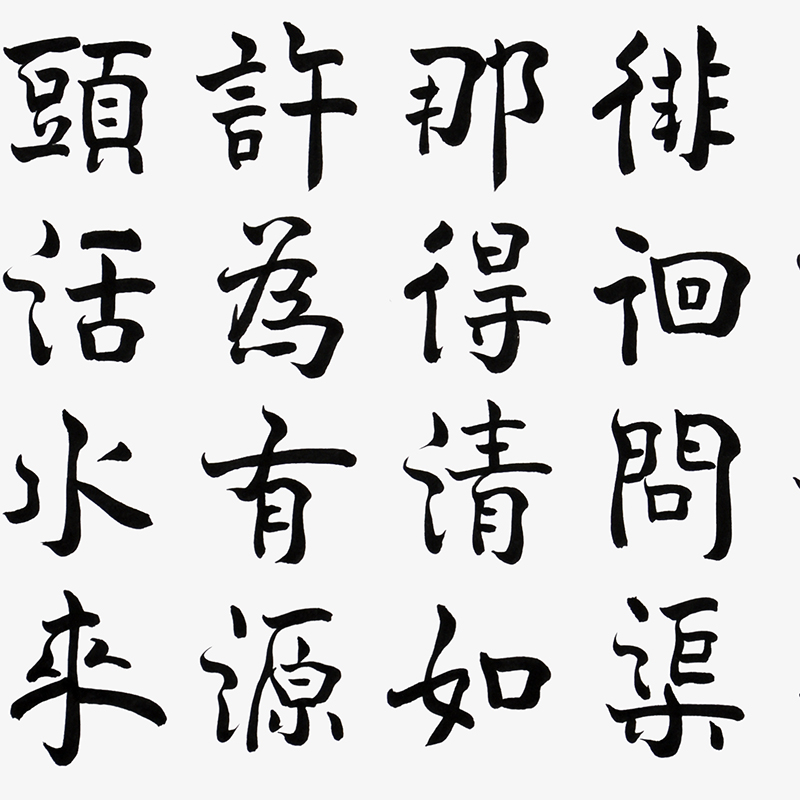 徘徊問渠
那得清如
許為有源
頭活水來